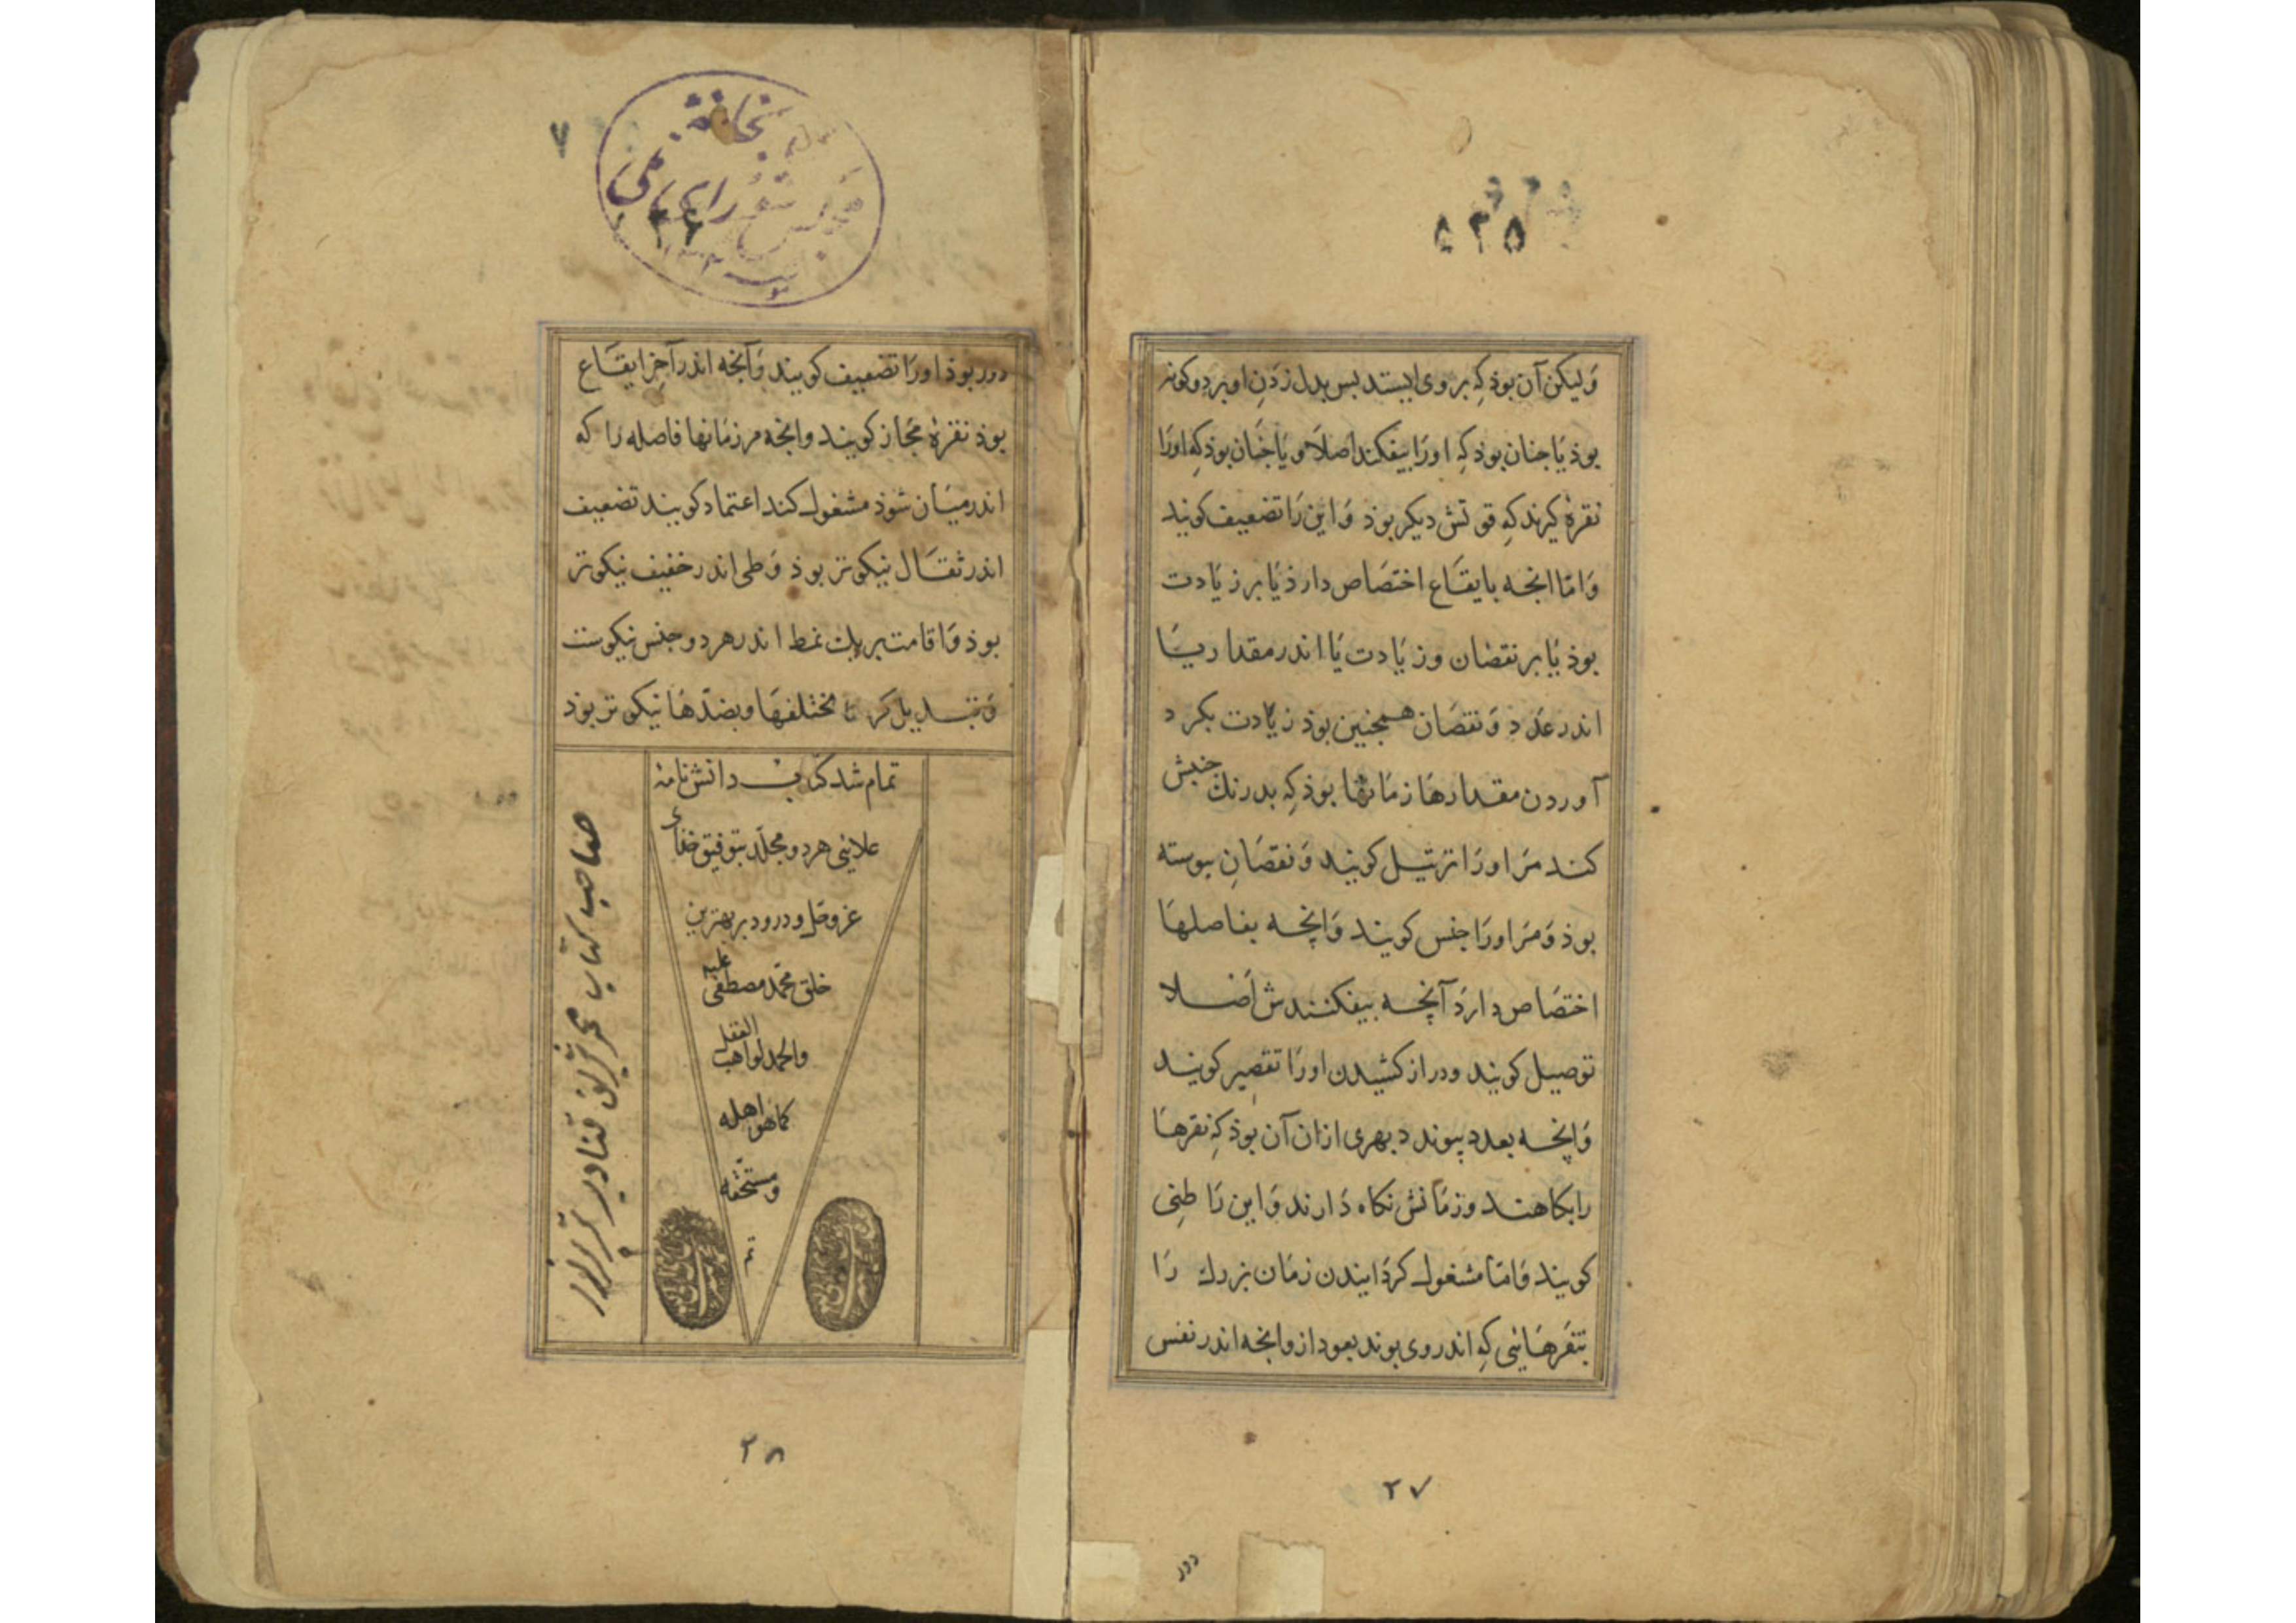 ۵۲۵
وَلیکن آن بوذ کِه بر وی ایستد بس بدل زدنِ او بر دو کونه
بوذ یَا جنان بوذ کِه اورَا بیفکند اصلاً و یَا جنَان بوذ کِه اورَا
نقرهٔ کیرند کِه قوتش دیکر بوذ وَاین رَا تضعیف کویند
وَامّا انجه بایقَاع اختصَاص دارذ یَا بر زیَادت
بوذ یَا بر نقصَان وزیَادت یَا اندر مقدار یَا
اندر عدد وَنقصَان همجنین بوذ زیَادت بکرد
آوردن مقدارهَا زمَانها بوذ کِه بدرنك جنبش
کند مَر اورَا ترتیل کویند وَنقصَانِ بیوسته
بوذ وَمَر اورَا جنس کویند وَانچه بفاصلهَا
اختصَاص دارَد آنچه بیفکنندش اَصلا
توصیل کویند ودراز کشیدن اورَا تقصِیر کویند
وَانچه بعدد پیوندد بهری ازان آن بوذ کِه نقرهَا
را بکاهند وزمَانش نکاه دَارند وَاین رَا طیی
کویند وَامّا مشغول کردَانیدن زمَان بزرك رَا
بنقرهَائی کِه اندر وی بوند بعود از وانجه اندر نفس
۲۷
دور
۷
کتابخانهٔ
مجلس شورای ملی
دور بوذ اورَا تضعیف کویند وَآنجه اندر آخِر ایقَاع
بوذ نقرهٔ مجَاز کویند وانجه مر زمَانها فاصله رَا که
اندر میَان شوذ مشغول کند اعتماد کویند تضعیف
اندر ثقَال نیکوتر بوذ وَطی اندر خفیف نیکوتر
بوذ وَاقامت بر یك نمط اندر هر دو جنس نیکوست
وَتبدیل کردن مختلفهَا وبضدّهَا نیکوتر بوذ
تمام شد کتاب دانش نامهٔ
علائی هر دو مجلّد بتوفیق خدای
عز وجل و درود بر بهترین
خلق محمّد مصطفی علیه
والحمد لواهب العقل
کما هو اهله
ومستحقّه
صاحب کتاب محمد شریف
۲۸